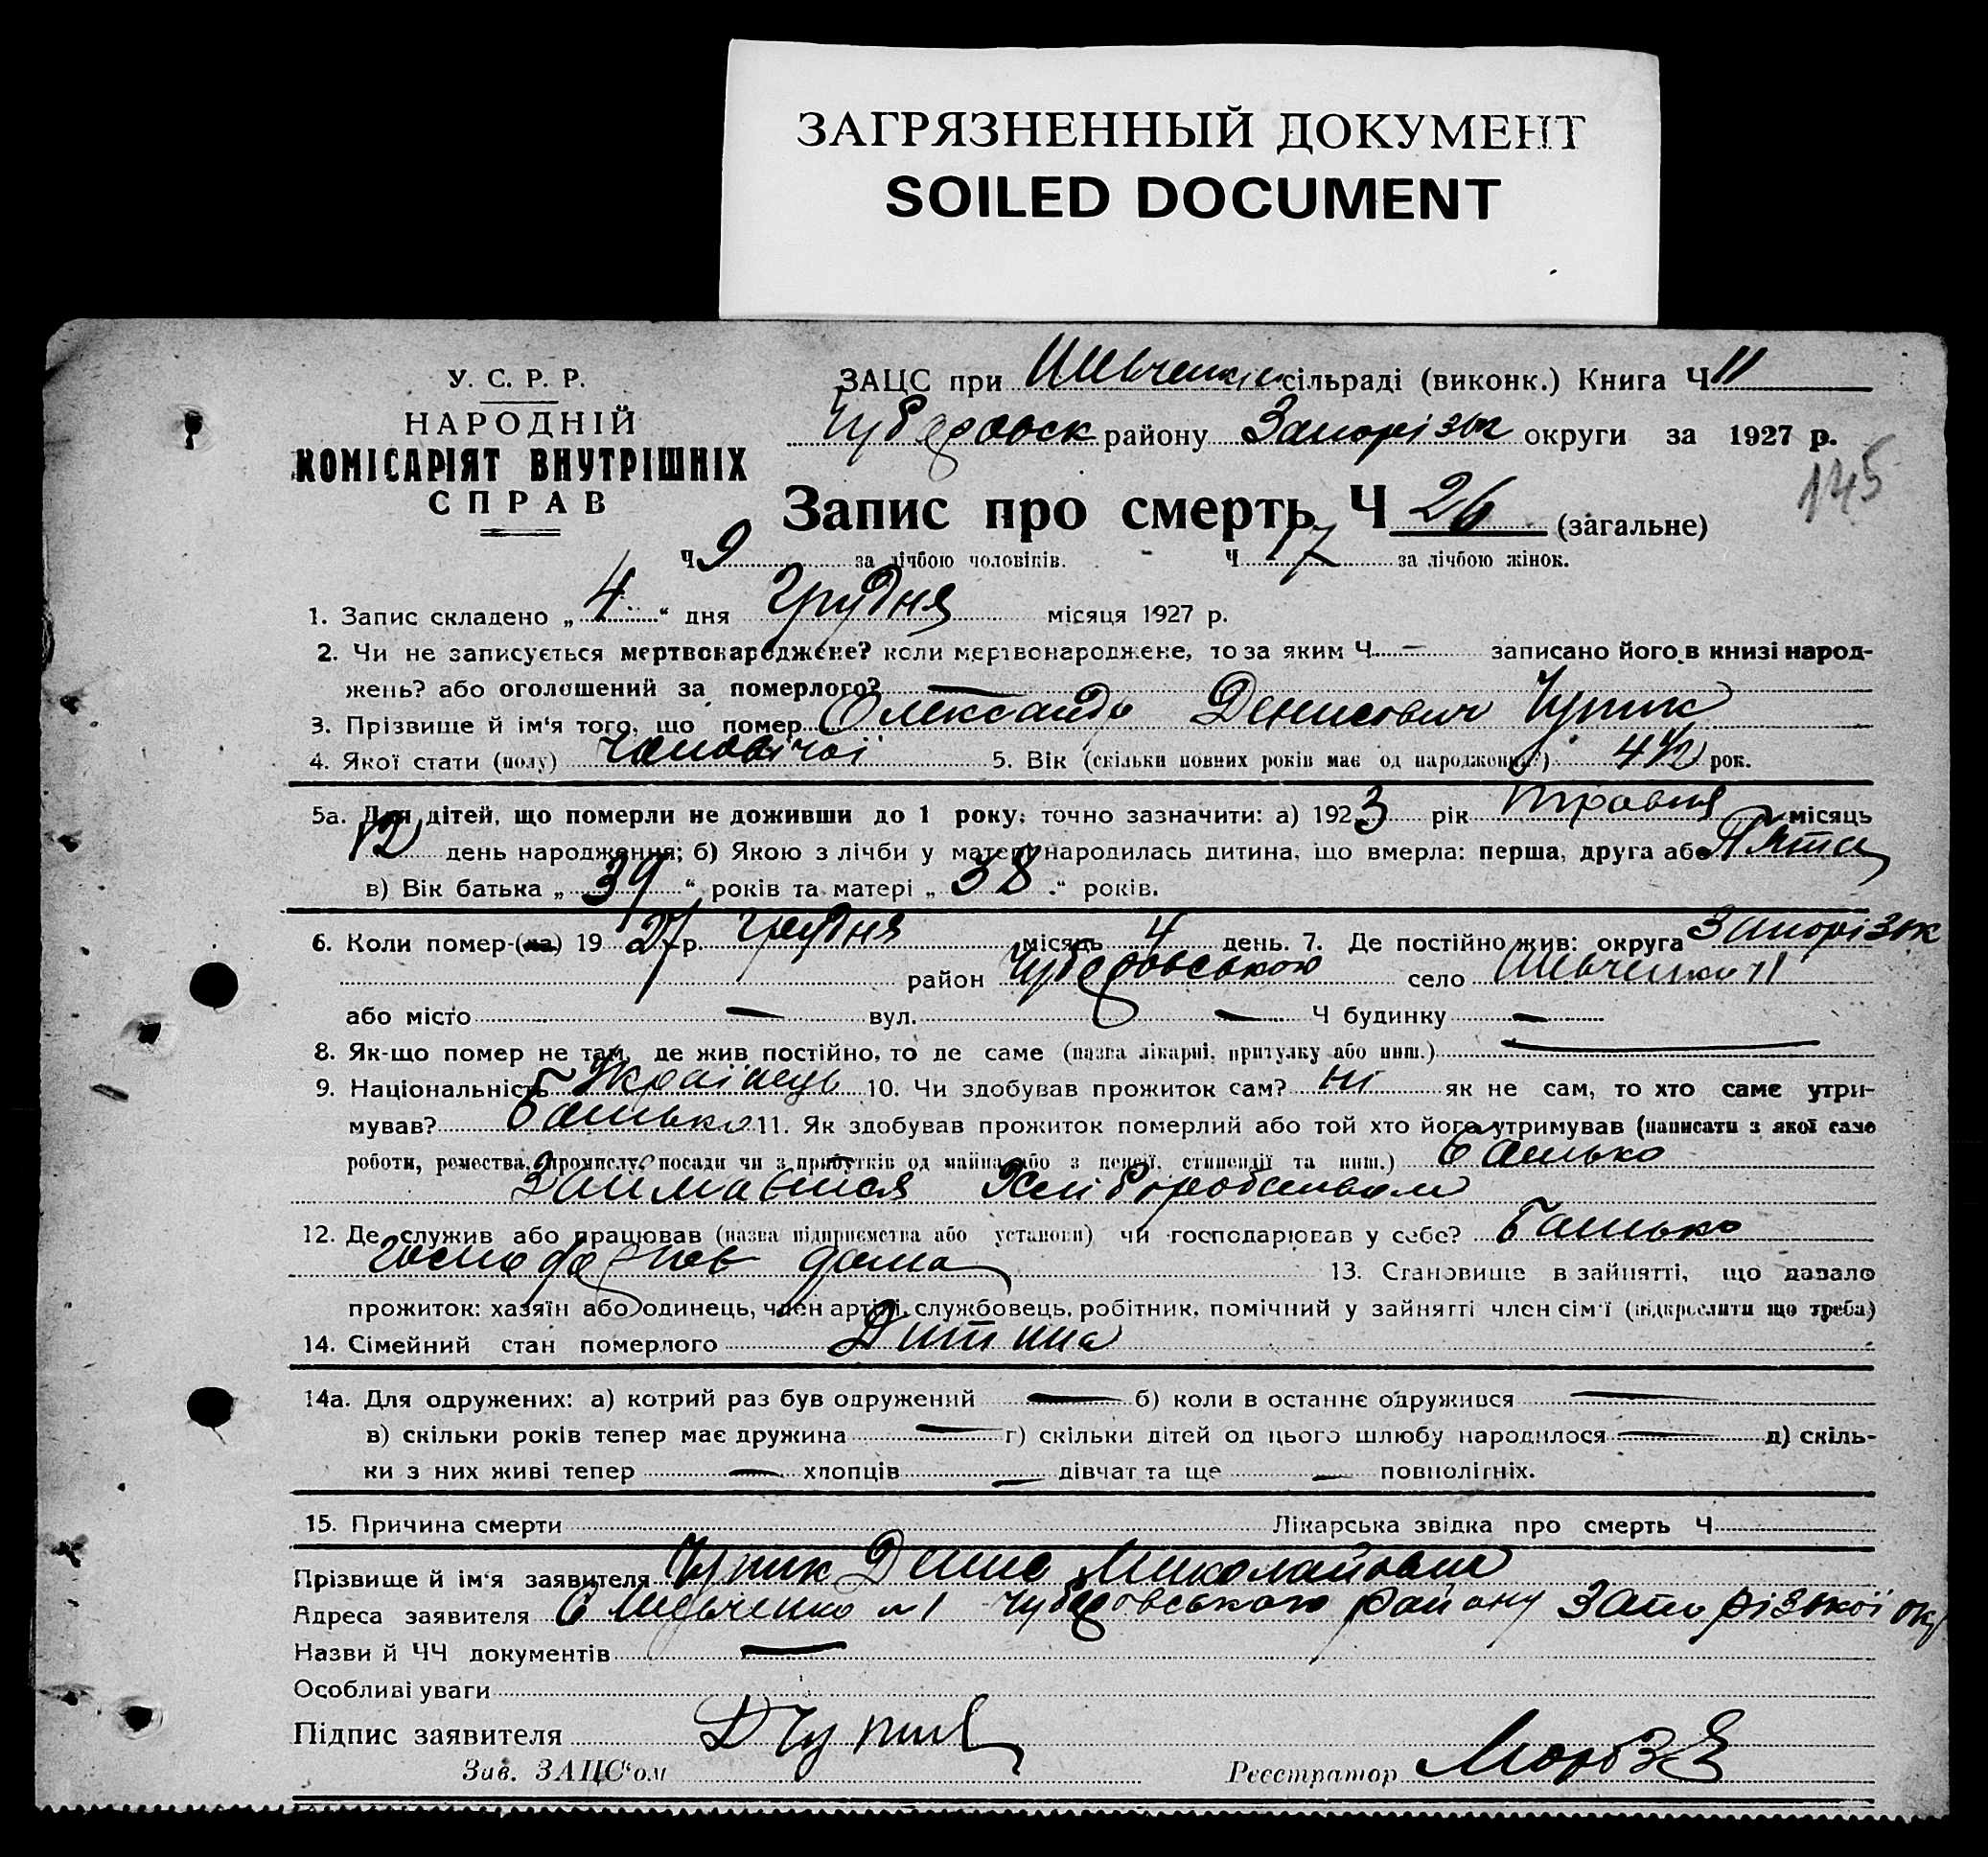 ЗАГРЯЗНЕННЫЙ ДОКУМЕНТ
SOILED DOCUMENT
У. С. Р. Р.
НАРОДНІЙ
КОМІСАРІЯТ ВНУТРІШНІХ
СПРАВ
ЗАЦС при Шевченк сільраді (виконк.) Книга Ч 11
Чубаровськ району Запорізьк округи за 1927 р.
145
Запис про смерть Ч 26 (загальне)
Ч 9 за лічбою чоловіків. Ч 17 за лічбою жінок.
1. Запис складено „ 4 “ дня Грудня місяця 1927 р.
2. Чи не записується мертвонароджене? коли мертвонароджене, то за яким Ч — записано його в книзі народ-
жень? або оголошений за померлого? —
3. Прізвище й ім'я того, що помер Олександр Денисович Чупик
4. Якої стати (полу) чоловічої 5. Вік (скільки повних років має од народження?) 4½ рок.
5а. Для дітей, що померли не доживши до 1 року; точно зазначити: а) 1923 рік травня місяць
12 день народження; б) Якою з лічби у матері народилась дитина, що вмерла: перша, друга або П'ята
в) Вік батька „ 39 “ років та матері „ 38 “ років.
6. Коли помер-(ла) 19 27 р. грудня місяць 4 день. 7. Де постійно жив: округа Запорізьк
район Чубаровського село Шевченко 11
або місто — вул. — Ч будинку —
8. Як-що помер не там, де жив постійно, то де саме (назва лікарні, притулку або инш.) —
9. Національність Українець 10. Чи здобував прожиток сам? ні як не сам, то хто саме утри-
мував? Батько 11. Як здобував прожиток померлий або той хто його утримував (написати з якої саме
роботи, ремества, промислу, посади чи з прибутків од майна або з пенсії, стипендії та инш.) Батько
Займаєтся Хліборобством
12. Де служив або працював (назва підприємства або установи) чи господарював у себе? Батько
господарював дома 13. Становище в зайнятті, що давало
прожиток: хазяїн або одинець, член артілі, службовець, робітник, помічний у зайнятті член сім'ї (підкреслити що треба)
14. Сімейний стан померлого Дитина
14а. Для одружених: а) котрий раз був одружений — б) коли в останнє одружився —
в) скільки років тепер має дружина — г) скільки дітей од цього шлюбу народилося — д) скіль-
ки з них живі тепер — хлопців — дівчат та ще — повнолітніх.
15. Причина смерти Лікарська звідка про смерть Ч
Прізвище й ім'я заявителя Чупик Денис Миколайович
Адреса заявителя С Шевченко №1 Чубаровського району Запорізької ок
Назви й ЧЧ документів —
Особливі уваги
Підпис заявителя Д Чупик
Зав. ЗАЦС'ом Реєстратор Мороз